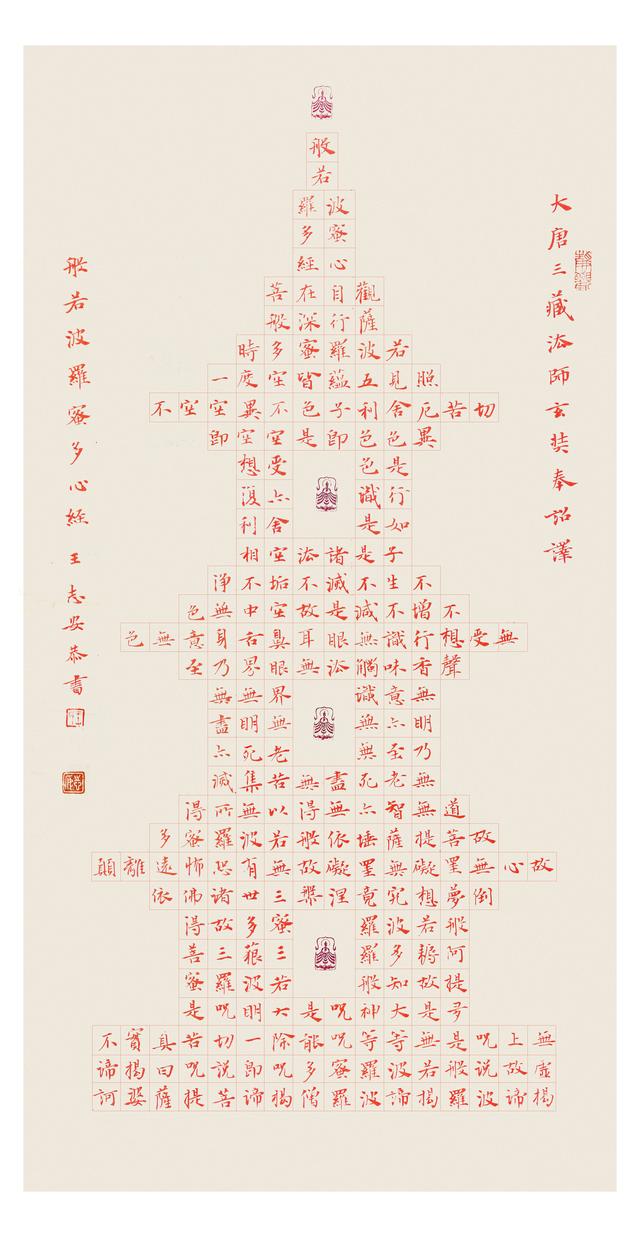 大唐三藏法師玄奘奉詔譯
般
若
波羅
蜜多
心經
觀自在菩
薩行深般
若波羅蜜多時
照見五蘊皆空度一
切苦厄舍利子色不異空空不
異色色即是空空即
是色受想
行識亦復
如是舍利
子是諸法空相
不生不滅不垢不淨
不增不減是故空中無色
無受想行識無眼耳鼻舌身意無色
聲香味觸法無眼界乃至
無意識界無無
明亦無無明盡
乃至無老死亦
無老死盡無苦集滅
道無智亦無得以無所得
故菩提薩埵依般若波羅蜜多
故心無罣礙無罣礙故無有恐怖遠離顛
倒夢想究竟涅槃三世諸佛依
般若波羅蜜多故得
阿耨多羅三藐三菩
提故知般若波羅蜜
多是大神咒是大明咒是
無上咒是無等等咒能除一切苦真實不
虛故說般若波羅蜜多咒即說咒曰揭諦
揭諦波羅揭諦波羅僧揭諦菩提薩婆訶
般若波羅蜜多心經 王志安恭書